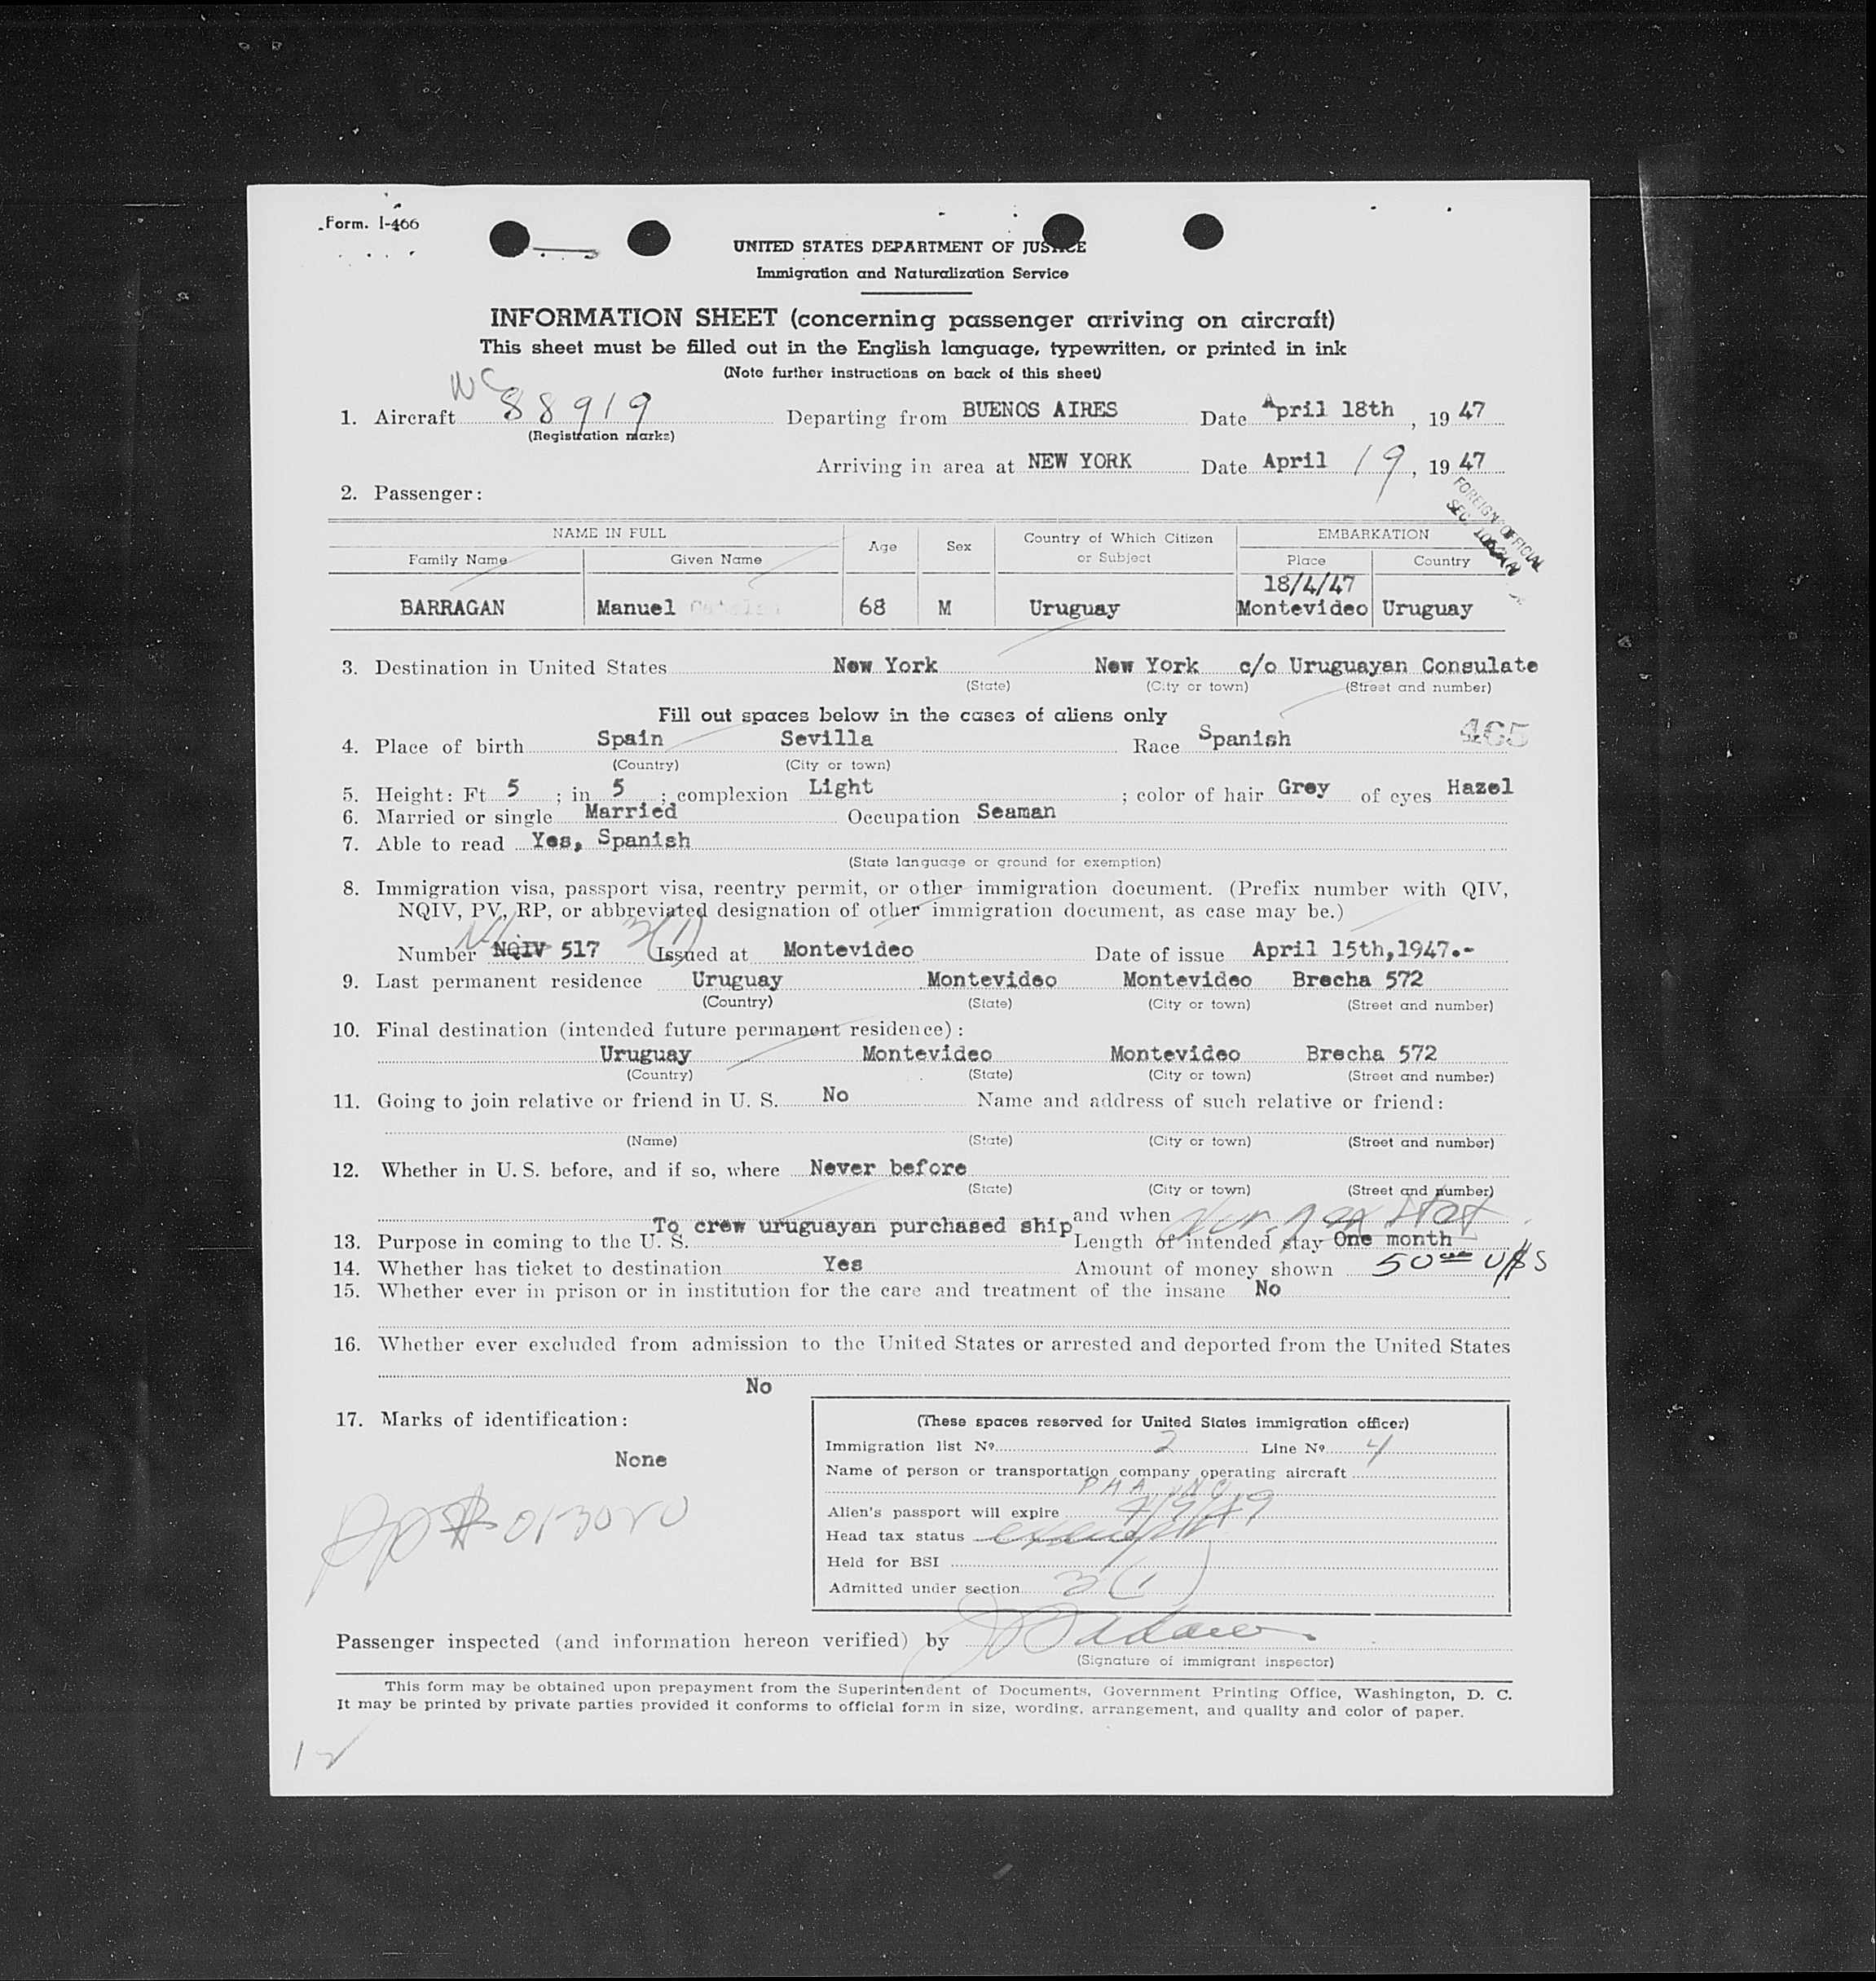 Form. I-466
UNITED STATES DEPARTMENT OF JUSTICE
Immigration and Naturalization Service
INFORMATION SHEET (concerning passenger arriving on aircraft)
This sheet must be filled out in the English language, typewritten, or printed in ink
(Note further instructions on back of this sheet)
1. Aircraft NC 88919 Departing from BUENOS AIRES Date April 18th, 1947
(Registration marks)
Arriving in area at NEW YORK Date April 19, 1947
2. Passenger:
FOREIGN OFFICIAL
SEC.
NAME IN FULL Age Sex Country of Which Citizen or Subject EMBARKATION
Family Name Given Name Place Country
18/4/47
BARRAGAN Manuel 68 M Uruguay Montevideo Uruguay
3. Destination in United States New York New York c/o Uruguayan Consulate
(State) (City or town) (Street and number)
Fill out spaces below in the cases of aliens only
465
4. Place of birth Spain Sevilla Race Spanish
(Country) (City or town)
5. Height: Ft 5 ; in 5 ; complexion Light ; color of hair Grey of eyes Hazel
6. Married or single Married Occupation Seaman
7. Able to read Yes, Spanish
(State language or ground for exemption)
8. Immigration visa, passport visa, reentry permit, or other immigration document. (Prefix number with QIV,
NQIV, PV, RP, or abbreviated designation of other immigration document, as case may be.)
Number NQIV 517 3(1) Issued at Montevideo Date of issue April 15th,1947.-
9. Last permanent residence Uruguay Montevideo Montevideo Brecha 572
(Country) (State) (City or town) (Street and number)
10. Final destination (intended future permanent residence):
Uruguay Montevideo Montevideo Brecha 572
(Country) (State) (City or town) (Street and number)
11. Going to join relative or friend in U. S. No Name and address of such relative or friend:
(Name) (State) (City or town) (Street and number)
12. Whether in U. S. before, and if so, where Never before
(State) (City or town) (Street and number)
and when
13. Purpose in coming to the U. S. To crew uruguayan purchased ship Length of intended stay One month
14. Whether has ticket to destination Yes Amount of money shown 50 U$S
15. Whether ever in prison or in institution for the care and treatment of the insane No
16. Whether ever excluded from admission to the United States or arrested and deported from the United States
No
17. Marks of identification:
None
(These spaces reserved for United States immigration officer)
Immigration list No. 2 Line No. 4
Name of person or transportation company operating aircraft
Alien's passport will expire
Head tax status exempt
Held for BSI
Admitted under section 3(1)
Passenger inspected (and information hereon verified) by
(Signature of immigrant inspector)
This form may be obtained upon prepayment from the Superintendent of Documents, Government Printing Office, Washington, D. C.
It may be printed by private parties provided it conforms to official form in size, wording, arrangement, and quality and color of paper.